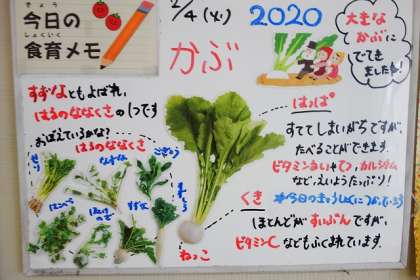 きょう
今日の
しょくいく
食育メモ
2/4(火)
2020
かぶ
大きな
かぶに
でてき
ましたね!
すずなともよばれ、
はるのななくさの1つです
おぼえているかな?
はるのななくさ
せり
なずな
ごぎょう
はこべら
ほとけのざ
すずな
すずしろ
はっぱ
すててしまいがちですが、
たべることができます。
ビタミンるいやてつ、カルシウム
など、えいようたっぷり!
くき
※今日のきゅうしょくにつかっている
ほとんどがすいぶんですが、
ビタミンCなどもふくまれています。
ねっこ